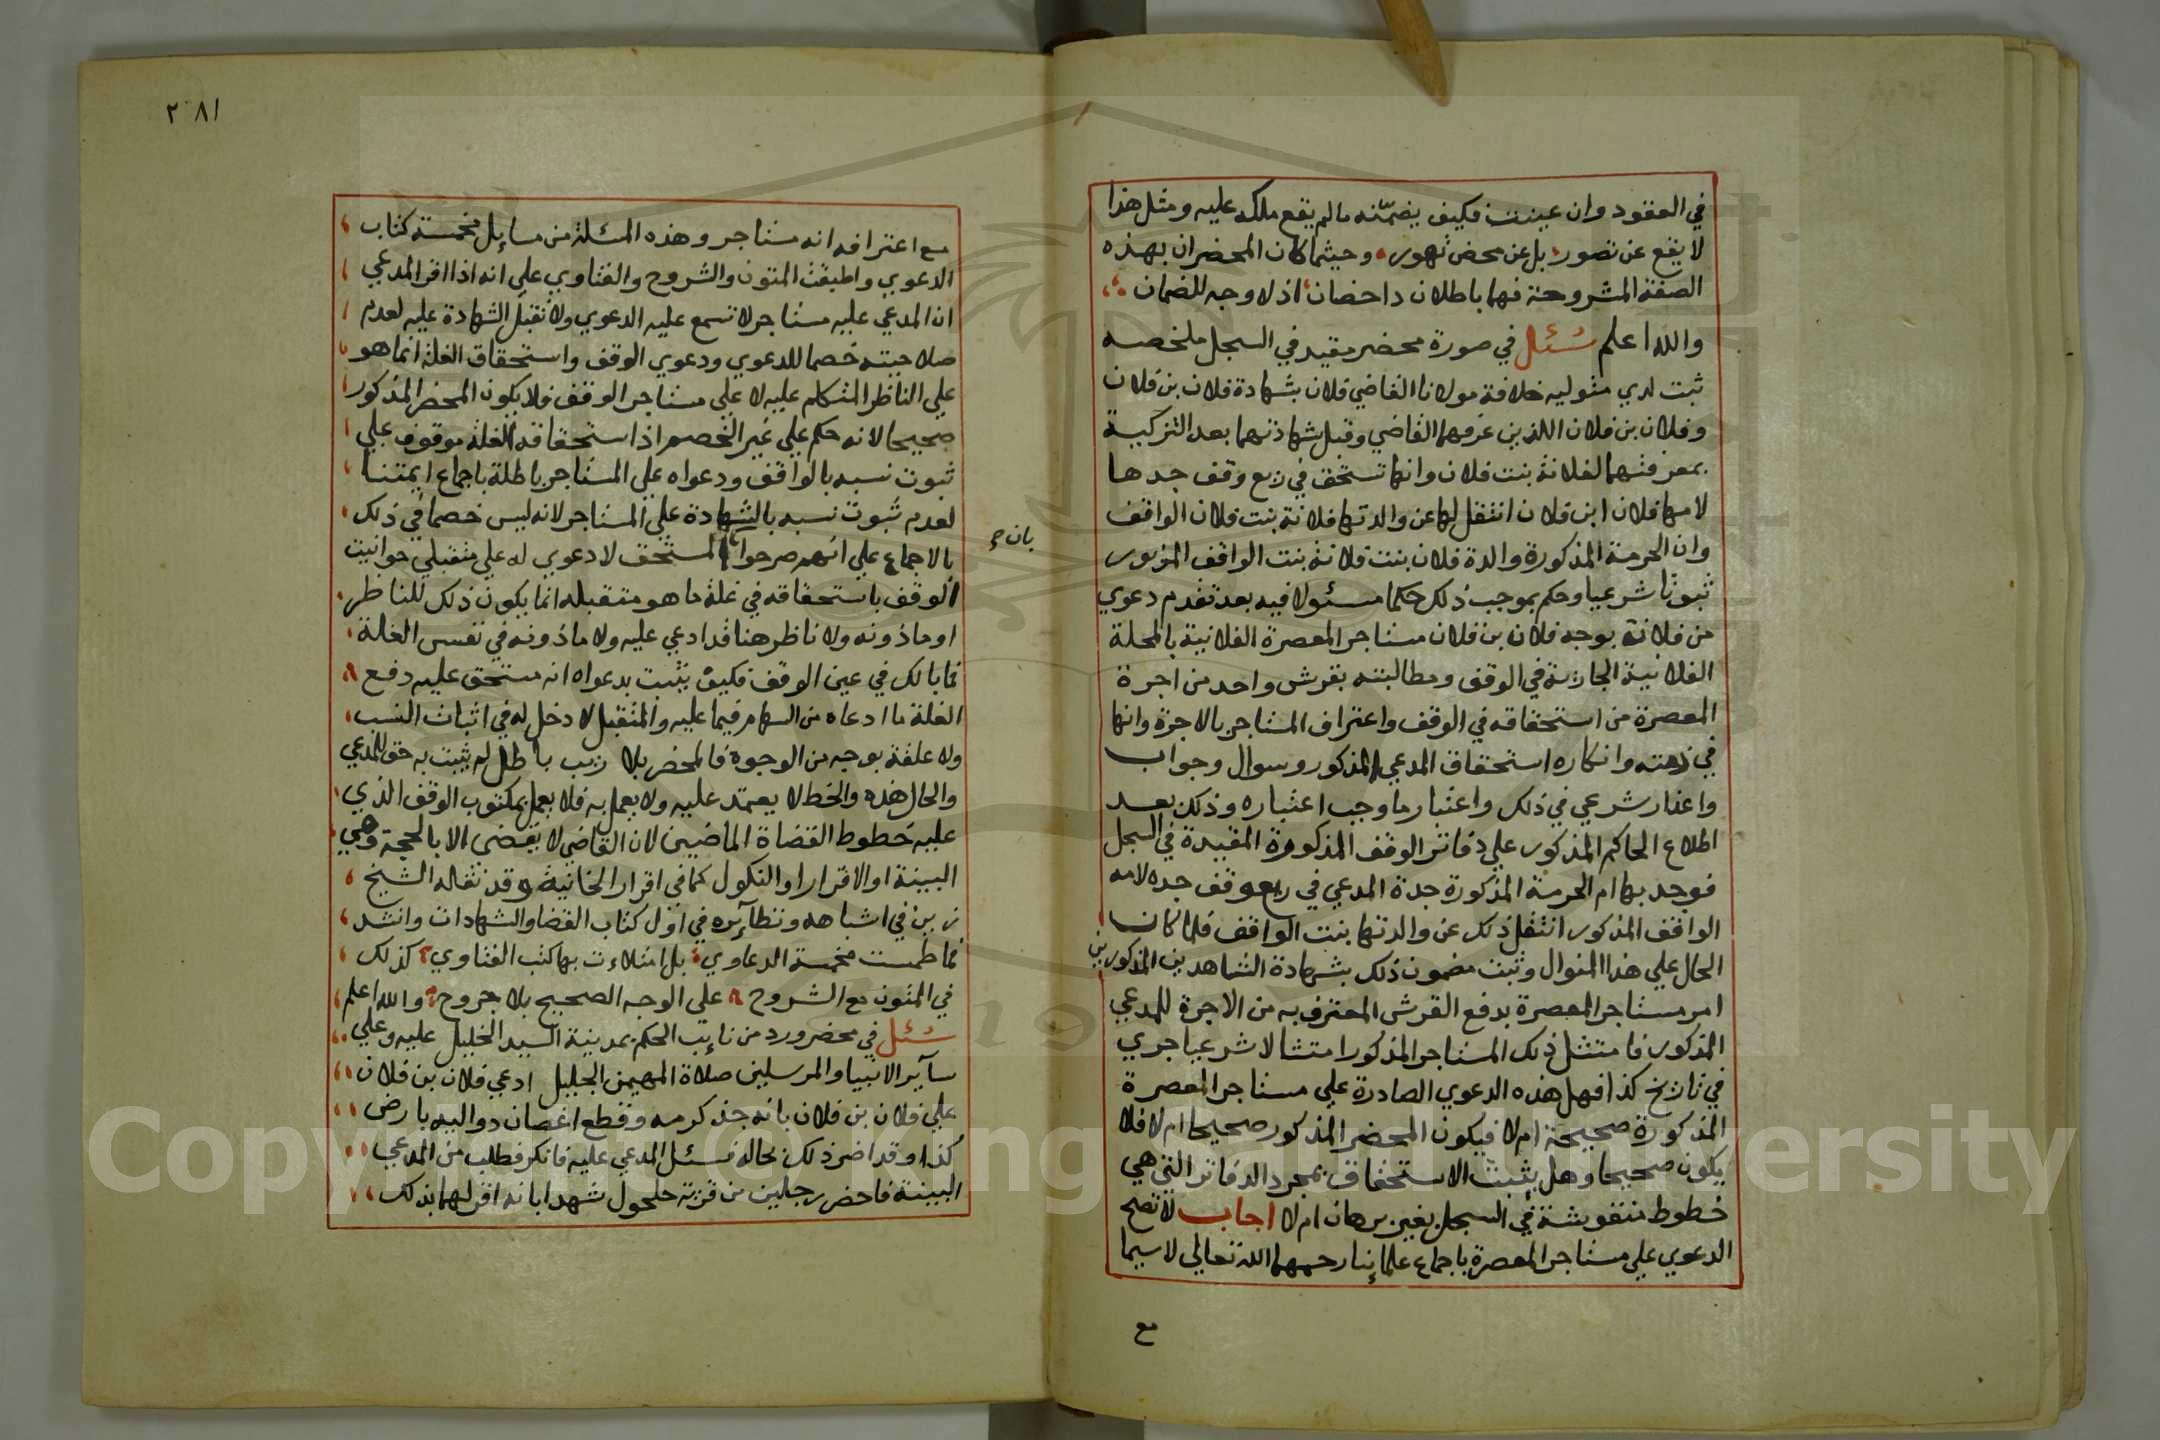 في العقود وان عينت فكيف يضمنه مالم يقع ملكه عليه ومثل هذا
لا يقع عن تصور بل عن محض تهور وحيثما كان المحضران بهذه
الصفة المشروحة فهما باطلان داحضان اذ لا وجه للضمان
والله اعلم سئل في صورة محضر مقيد في السجل ملخصه
ثبت لدي متوليه خلافة مولانا القاضي فلان بشهادة فلان بن فلان
وفلان بن فلان اللذين عرفهما القاضي وقبل شهادتهما بعد التزكية
بمعرفتهما لفلانة بنت فلان وانها تستحق في ريع وقف جدها
لامها فلان ابن فلان انتقل لها عن والدتها فلانة بنت فلان الواقف
وان الحرمة المذكورة والدة فلان بنت فلانة بنت الواقف المزبور
ثبوتا شرعيا وحكم بموجب ذلك حكما مسئولا فيه بعد تقدم دعوي
من فلانة بوجه فلان بن فلان مستاجر المعصرة الفلانية بالمحلة
الفلانية الجارية في الوقف ومطالبته بقرش واحد من اجرة
المعصرة من استحقاقه في الوقف واعتراف المستاجر بالاجرة وانها
في ذمته وانكاره استحقاق المدعي المذكور وسوال وجواب
واعذار شرعي في ذلك واعتبار ما وجب اعتباره وذلك بعد
اطلاع الحاكم المذكور علي دفاتر الوقف المذكورة المقيدة في السجل
فوجد بها ام الحرمة المذكورة جدة المدعي في ريع وقف جده لامه
الواقف المذكور انتقل ذلك عن والدتها بنت الواقف فلما كان
الحال علي هذا المنوال وثبت مضمون ذلك بشهادة الشاهدين المذكورين
امر مستاجر المعصرة بدفع القرش المعترف به من الاجرة للمدعي
المذكور فامتثل ذلك المستاجر المذكور امتثالا شرعيا جري
في تاريخ كذا فهل هذه الدعوي الصادرة علي مستاجر المعصرة
المذكورة صحيحة ام لا فيكون المحضر المذكور صحيحا ام لا فلا
يكون صحيحا وهل يثبت الاستحقاق بمجرد الدفاتر التي هي
خطوط منقوشة في السجل بغير برهان ام لا اجاب لا تصح
الدعوي علي مستاجر المعصرة باجماع علمائنا رحمهما الله تعالي لاسيما
مع
٢٨١
مع اعترافه انه مستاجر وهذه المسئلة من مسايل مخمسة كتاب
الدعوي واطبقت المتون والشروح والفتاوي علي انه اذا اقر المدعي
ان المدعي عليه مستاجر لا تسمع عليه الدعوي ولا تقبل الشهادة عليه لعدم
صلاحيته خصما للدعوي ودعوي الوقف واستحقاق الغلة انما هو
علي الناظر المتكلم عليه لا علي مستاجر الوقف فلا يكون المحضر المذكور
صحيحا لانه حكم علي غير الخصم اذ استحقاقه الغلة موقوف علي
ثبوت نسبه بالواقف ودعواه علي المستاجر باطلة باجماع ايمتنا
لعدم ثبوت نسبه بالشهادة علي المستاجر لانه ليس خصما في ذلك
بالاجماع علي انهم صرحوا المستحق لا دعوي له علي متقبلي حوانيت
بان صح
الوقف باستحقاقه في غلة ما هو متقبله انما يكون ذلك للناظر
او ماذونه ولا ناظر هنا قد ادعي عليه ولا ماذونه في نفس الغلة
فما بالك في عين الوقف فكيف يثبت بدعواه انه مستحق عليه دفع
الغلة ما ادعاه من السهام فيما عليه والمتقبل لا دخل له في اثبات النسب
ولا علقة بوجه من الوجوه فالمحضر بلا ريب باطل لم يثبت به حق للمدعي
والحال هذه والخط لا يعتمد عليه ولا يعمل به فلا يعمل بمكتوب الوقف الذي
عليه خطوط القضاة الماضيين لان القاضي لا يقضي الا بالحجة وهي
البينة او الاقرار او النكول كما في اقرار الخانية وقد نقله الشيخ
زين في اشباهه ونظائره في اول كتاب القضا والشهادات وانشد
فما طمست مخمسة الدعاوي بل امتلات بها كتب الفتاوي كذلك
في المتون مع الشروح علي الوجه الصحيح بلا جروح والله اعلم
سئل في محضر ورد من نايب الحكم بمدينة السيد الخليل عليه وعلي
سآير الانبيا والمرسلين صلاة المهيمن الجليل ادعي فلان بن فلان
علي فلان بن فلان بانه جذ كرمه وقطع اغصان دواليه بارض
كذا وقد اضر ذلك بحاله فسئل المدعي عليه فانكر فطلب من المدعي
البينة فاحضر رجلين من قرية حلحول شهدا بانه اقر لهما بذلك
Copyright © King Saud University